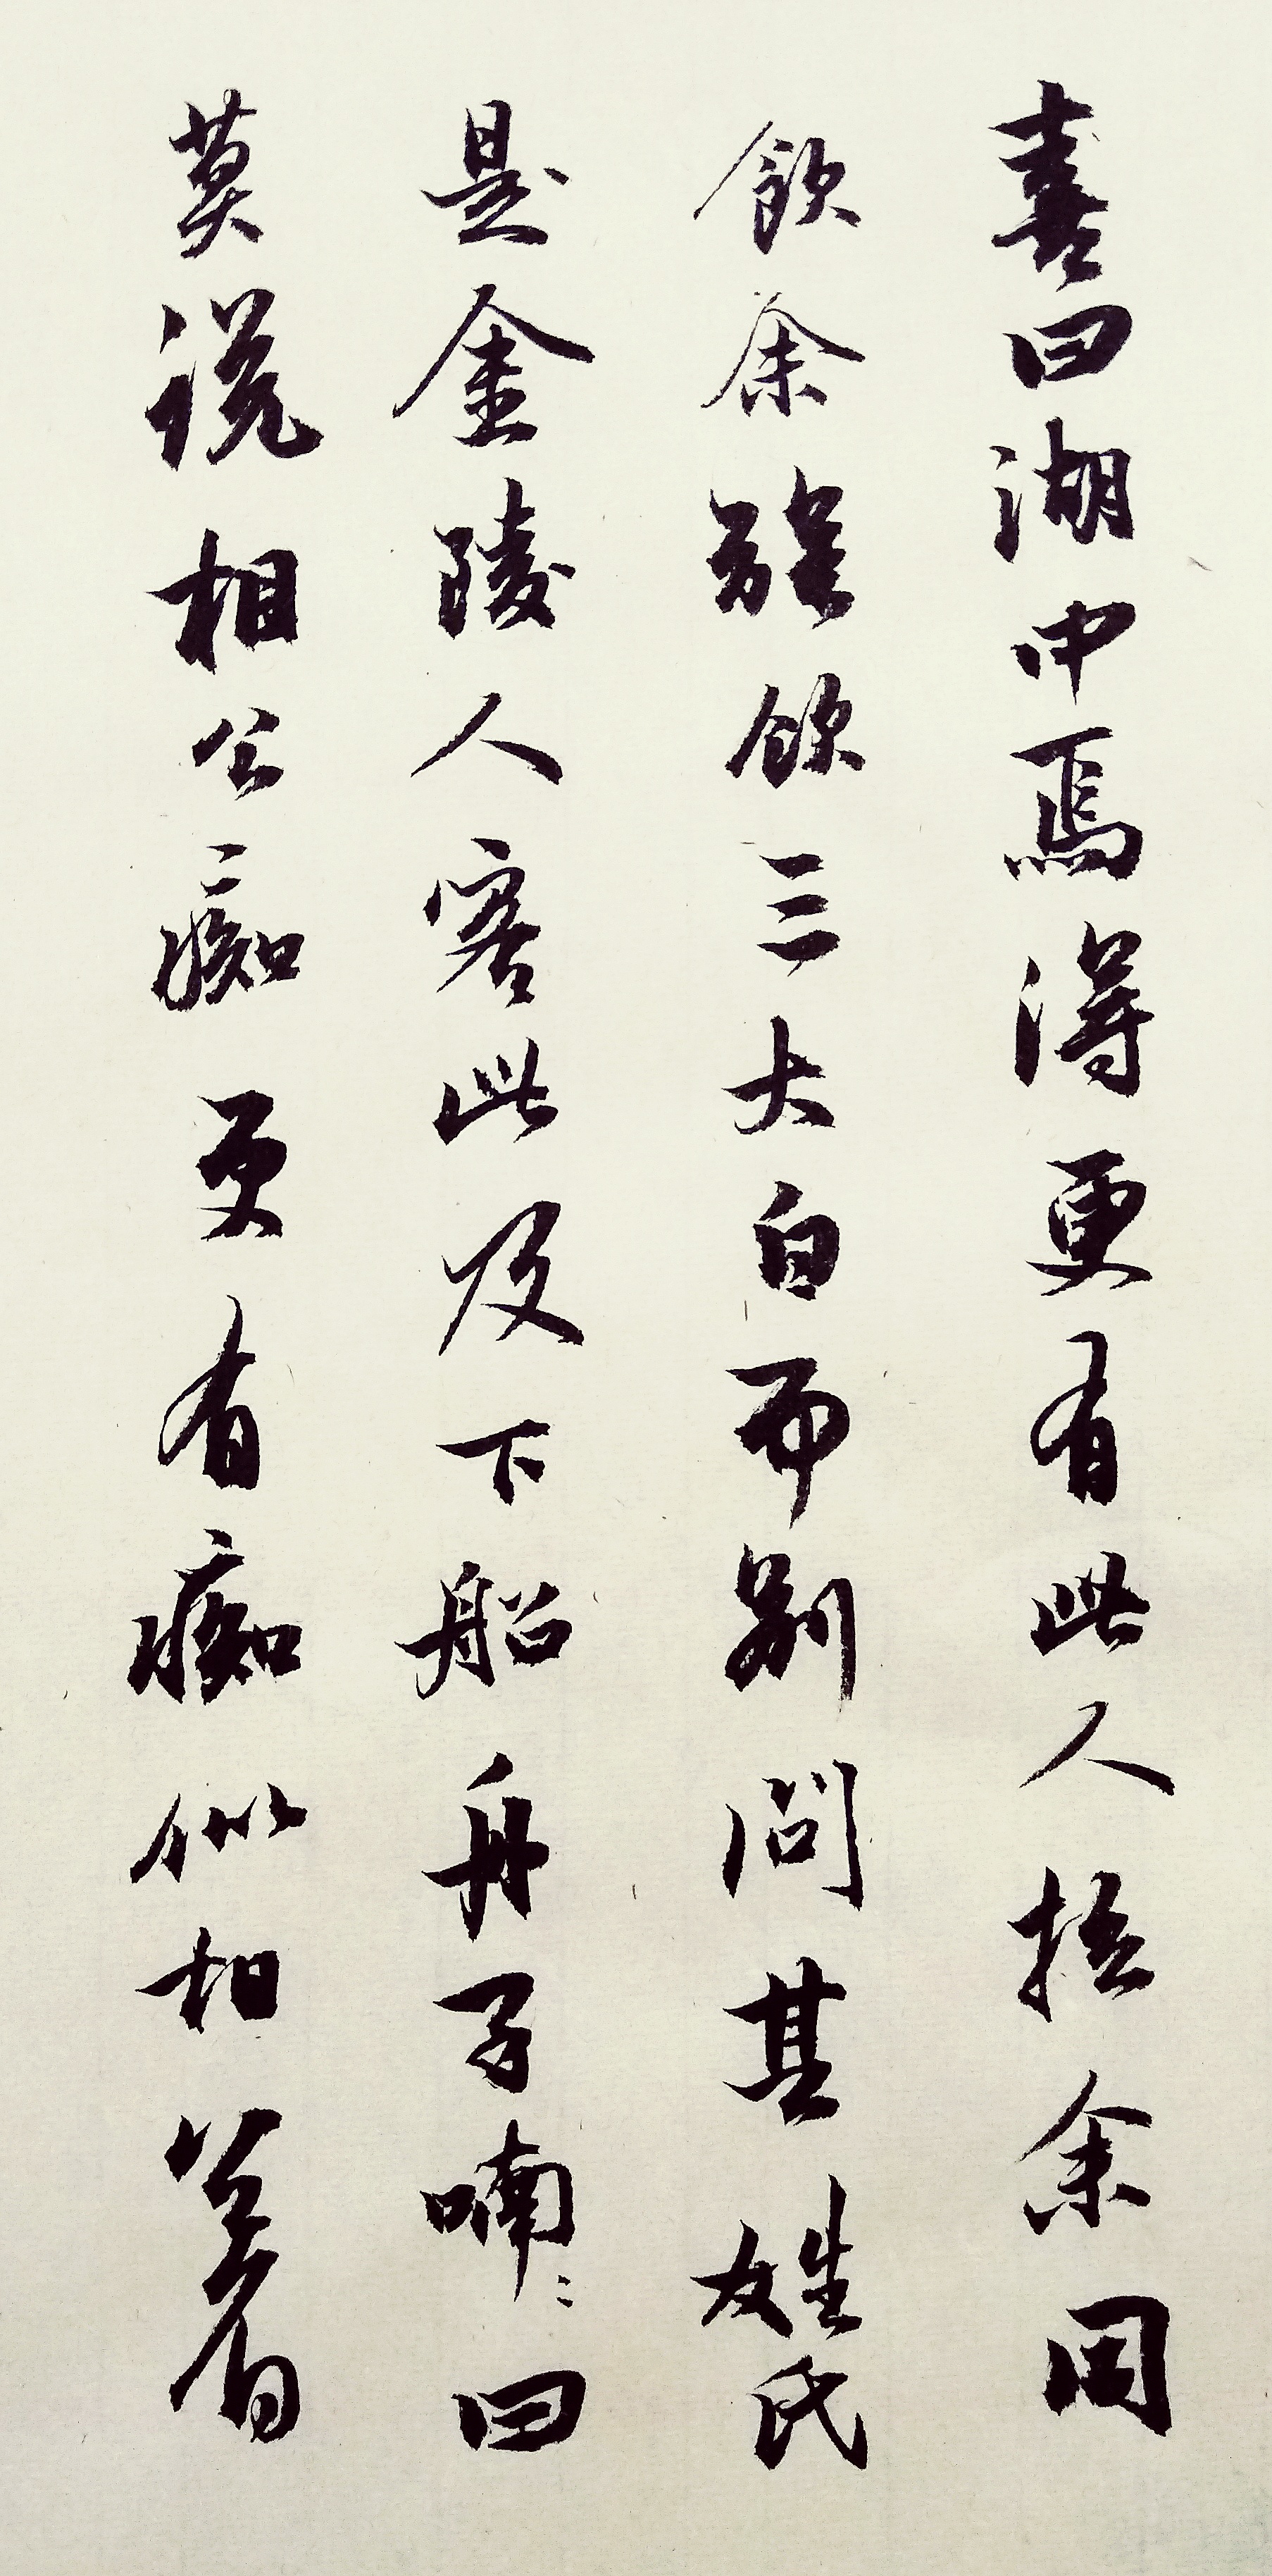 喜曰湖中焉得更有此人拉余同
飲余強飲三大白而别問其姓氏
是金陵人客此及下船舟子喃〻曰
莫説相公痴更有痴似相公者